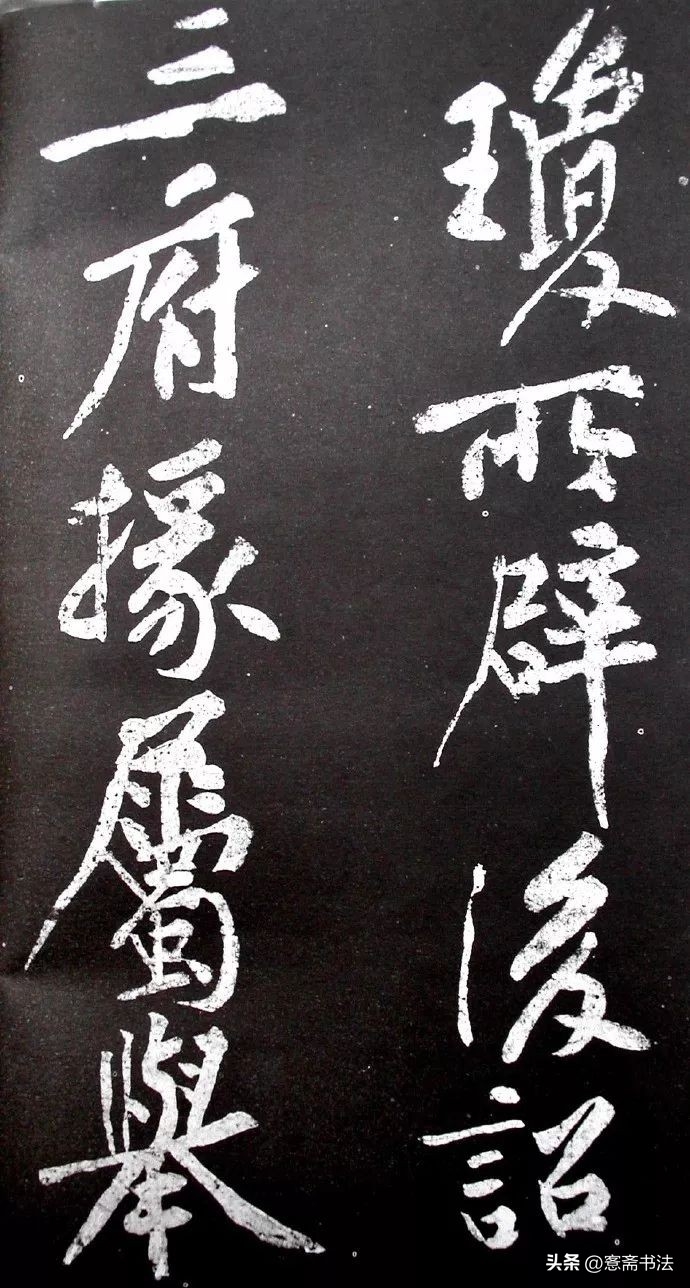 瓊所辟後詔
三府掾屬舉
头条 @窓斋书法